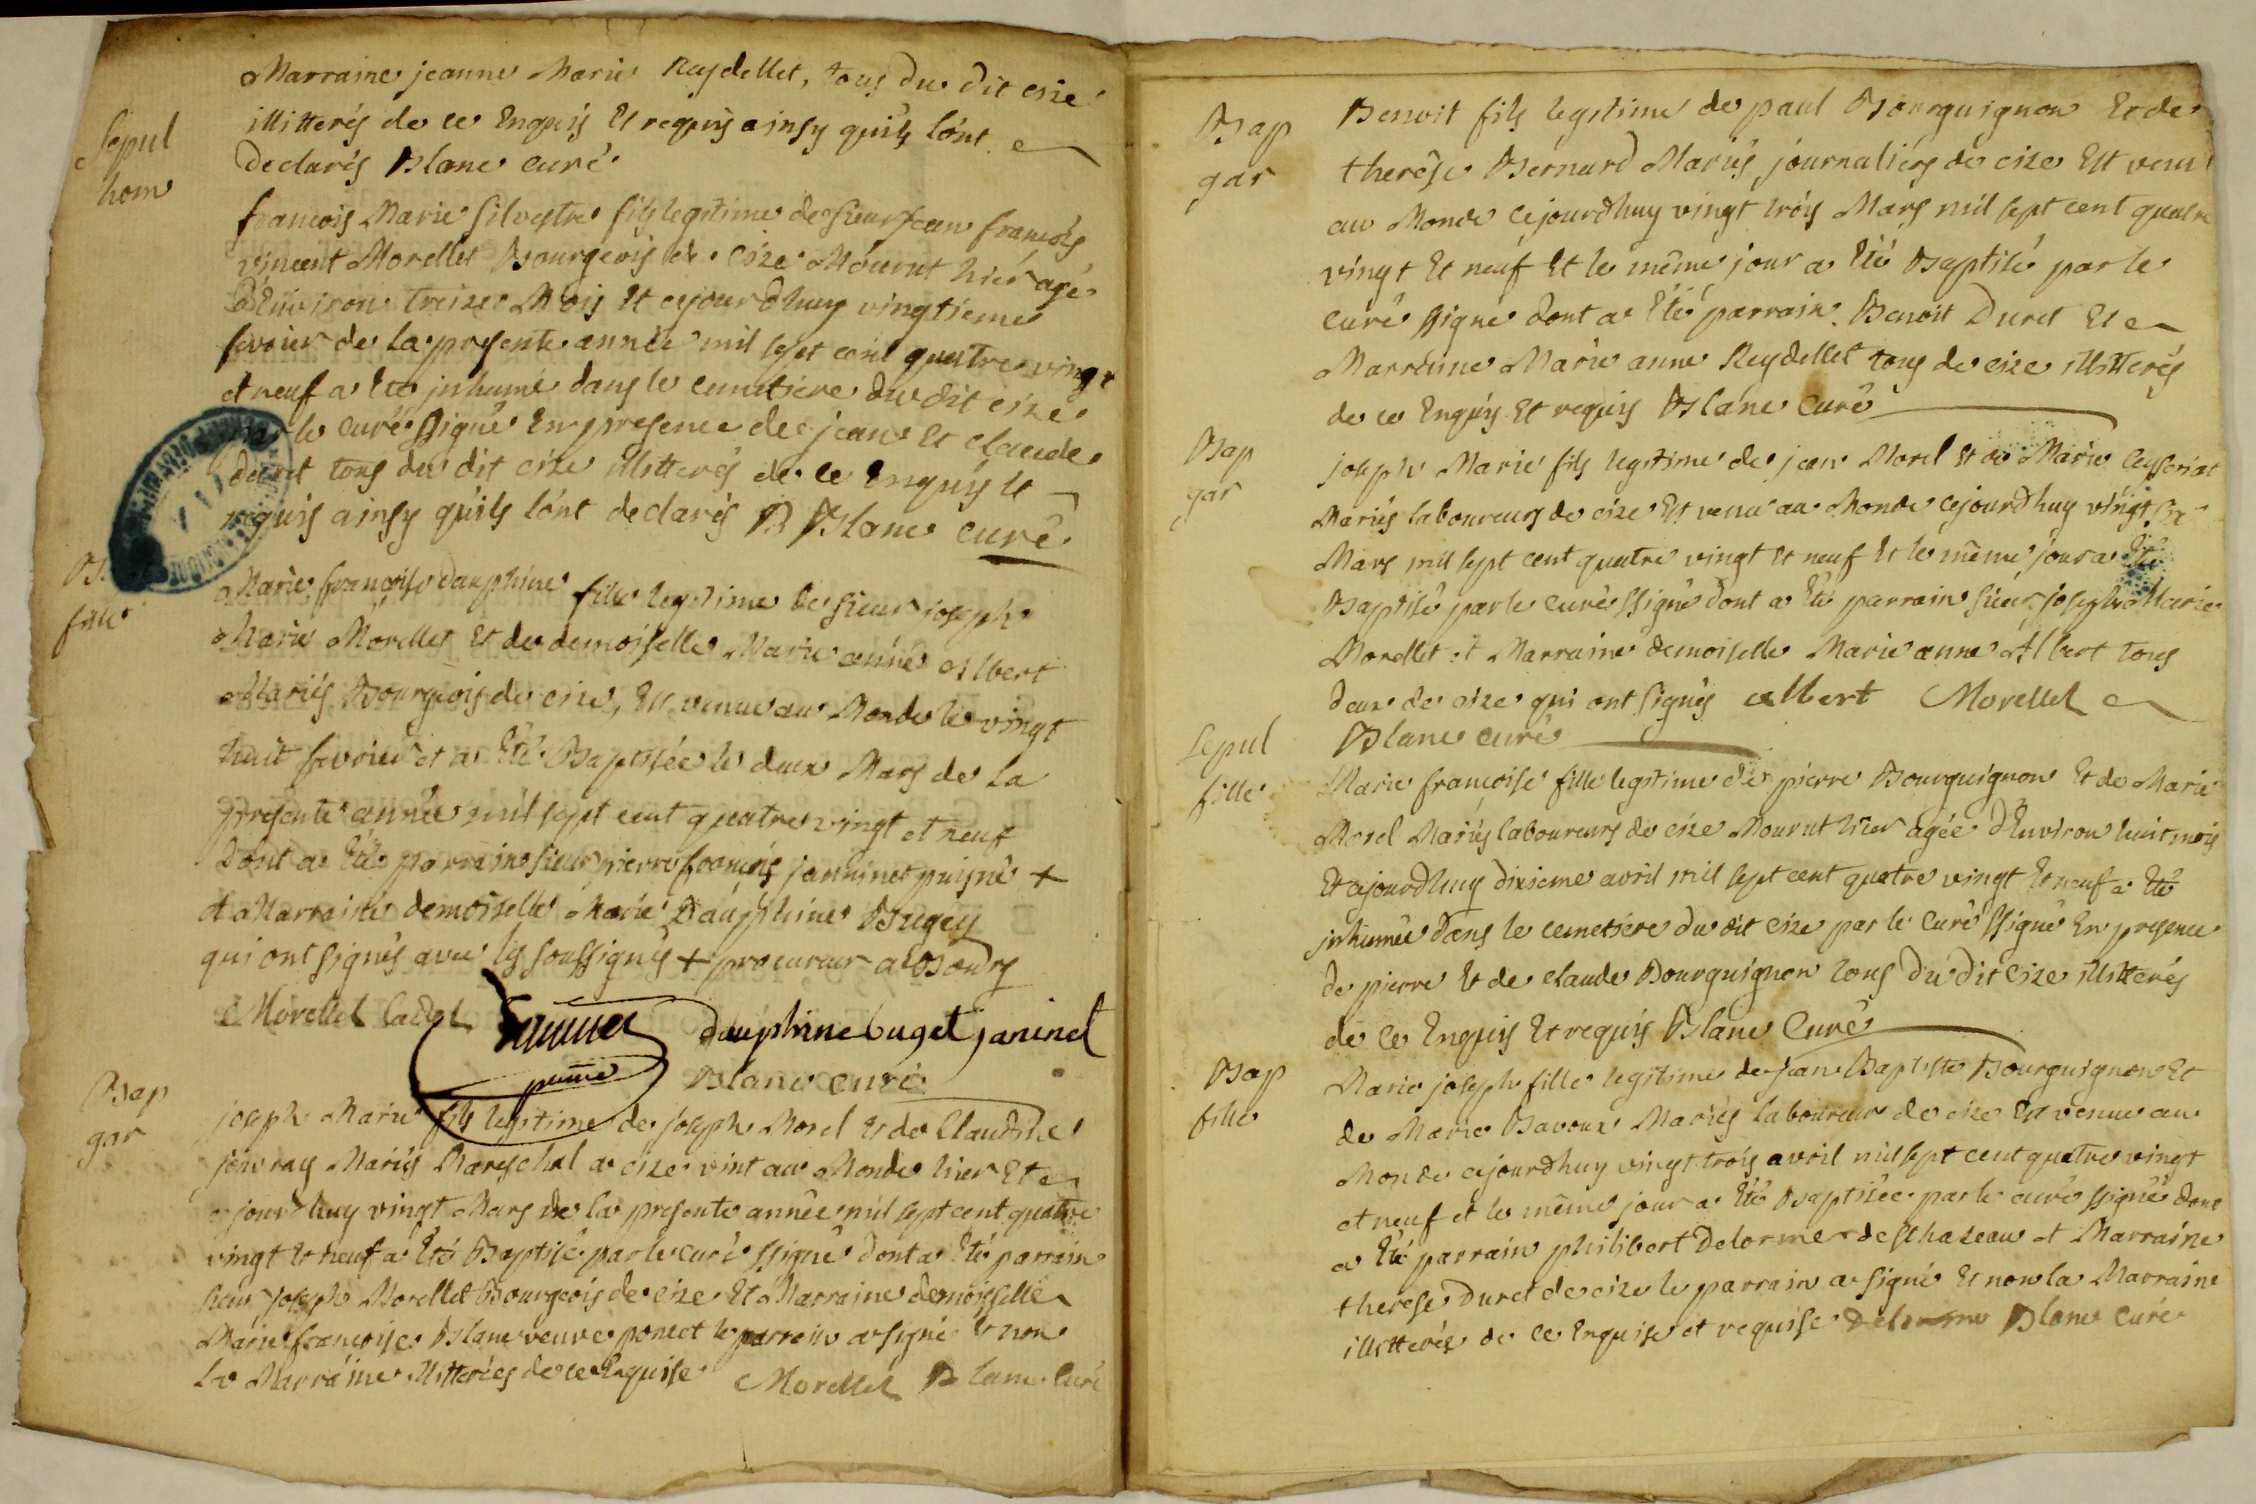 Marraine jeanne Marie Reydellet, tous du dit cize
illitterés de ce Enquis Et requis ainsy quils lont
declarés Blanc curé
Sepul
hom
francois Marie Silvestre fils legitime de Sieur jean francois
vincent Morellet Bourgeois de Cize Mourut hier agé
d'Environ treize Mois Et cejourdhuy vingtieme
fevrier de la presente année mil sept cent quatre vingt
et neuf a Eté inhumé dans le cimetiere du dit cize
par le curé ssigné En presence de jean Et claude
duret tous du dit cize illitterés de ce Enquis Et
requis ainsy quils lont declarés B Blanc curé
fille
Marie francoise dauphine fille legitime de Sieur joseph
Marie Morellet Et de demoiselle Marie anne Albert
Mariés Bourgeois de cize, Est venue au Monde le vingt
huit fevrier et a Eté Baptisée le deux Mars de la
presente année mil sept cent quatre vingt et neuf
dont a Eté parrain sieur pierre francois janninet puisné +
et Marraine demoiselle Marie Dauphine Bugey
qui ont signés avec les soussignés + procureur a Bourg
Morellet cadet dauphine buget janinet
Blanc curé
Bap
gar
joseph Marie fils legitime de joseph Morel Et de Claudine
jouvray Mariés Mareschal a cize vint au Monde hier Et
cejourdhuy vingt Mars de la presente année mil sept cent quatre
vingt Et neuf a Eté Baptisé par le curé ssigné dont a Eté parrain
sieur joseph Morellet Bourgeois de cize Et Marraine demoiselle
Marie francoise Blanc veuve poncet le parrain a signé Et non
la Marraine illitterées de ce Enquise Morellet Blanc Curé
Bap
gar
Benoit fils legitime de paul Bourguignon Et de
therése Bernard Mariés journaliers de cize Est venu
au Monde cejourdhuy vingt trois Mars mil sept cent quatre
vingt Et neuf Et le même jour a Eté Baptisé par le
curé ssigné dont a Eté parrain Benoit Duret Et
Marraine Marie anne Reydellet tous de cize illitterés
de ce Enquis Et requis Blanc Curé
Bap
gar
joseph Marie fils legitime de jean Morel Et de Marie
Mariés laboureurs de cize Est venu au Monde cejourdhuy vingt six
Mars mil sept cent quatre vingt Et neuf Et le même jour a Eté
Baptisé par le curé ssigné dont a Eté parrain sieur joseph Marie
Morellet et Marraine demoiselle Marie anne Albert tous
deux de cize qui ont signés albert Morellet
Blanc curé
Sepul
fille
Marie francoise fille legitime de pierre Bourguignon Et de Marie
Morel Mariés laboureurs de cize Mourut hier agée d'Environ huit mois
Et cejourdhuy dixieme avril mil sept cent quatre vingt Et neuf a Eté
inhumée dans le cemetiere du dit cize par le curé ssigné En presence
de pierre Et de claude Bourguignon tous du dit Cize illitterés
de ce Enquis Et requis Blanc Curé
Bap
fille
Marie joseph fille legitime de jean Baptiste Bourguignon Et
de Marie Bavoux Mariés laboureur de cize Est venue au
Monde cejourdhuy vingt trois avril mil sept cent quatre vingt
et neuf et le même jour a Eté Baptisée par le curé ssigné dont
a Eté parrain philibert Delorme de et Marraine
therese Duret de cize le parrain a signé Et non la Marraine
illitterée de ce Enquise et requise Delorme Blanc curé